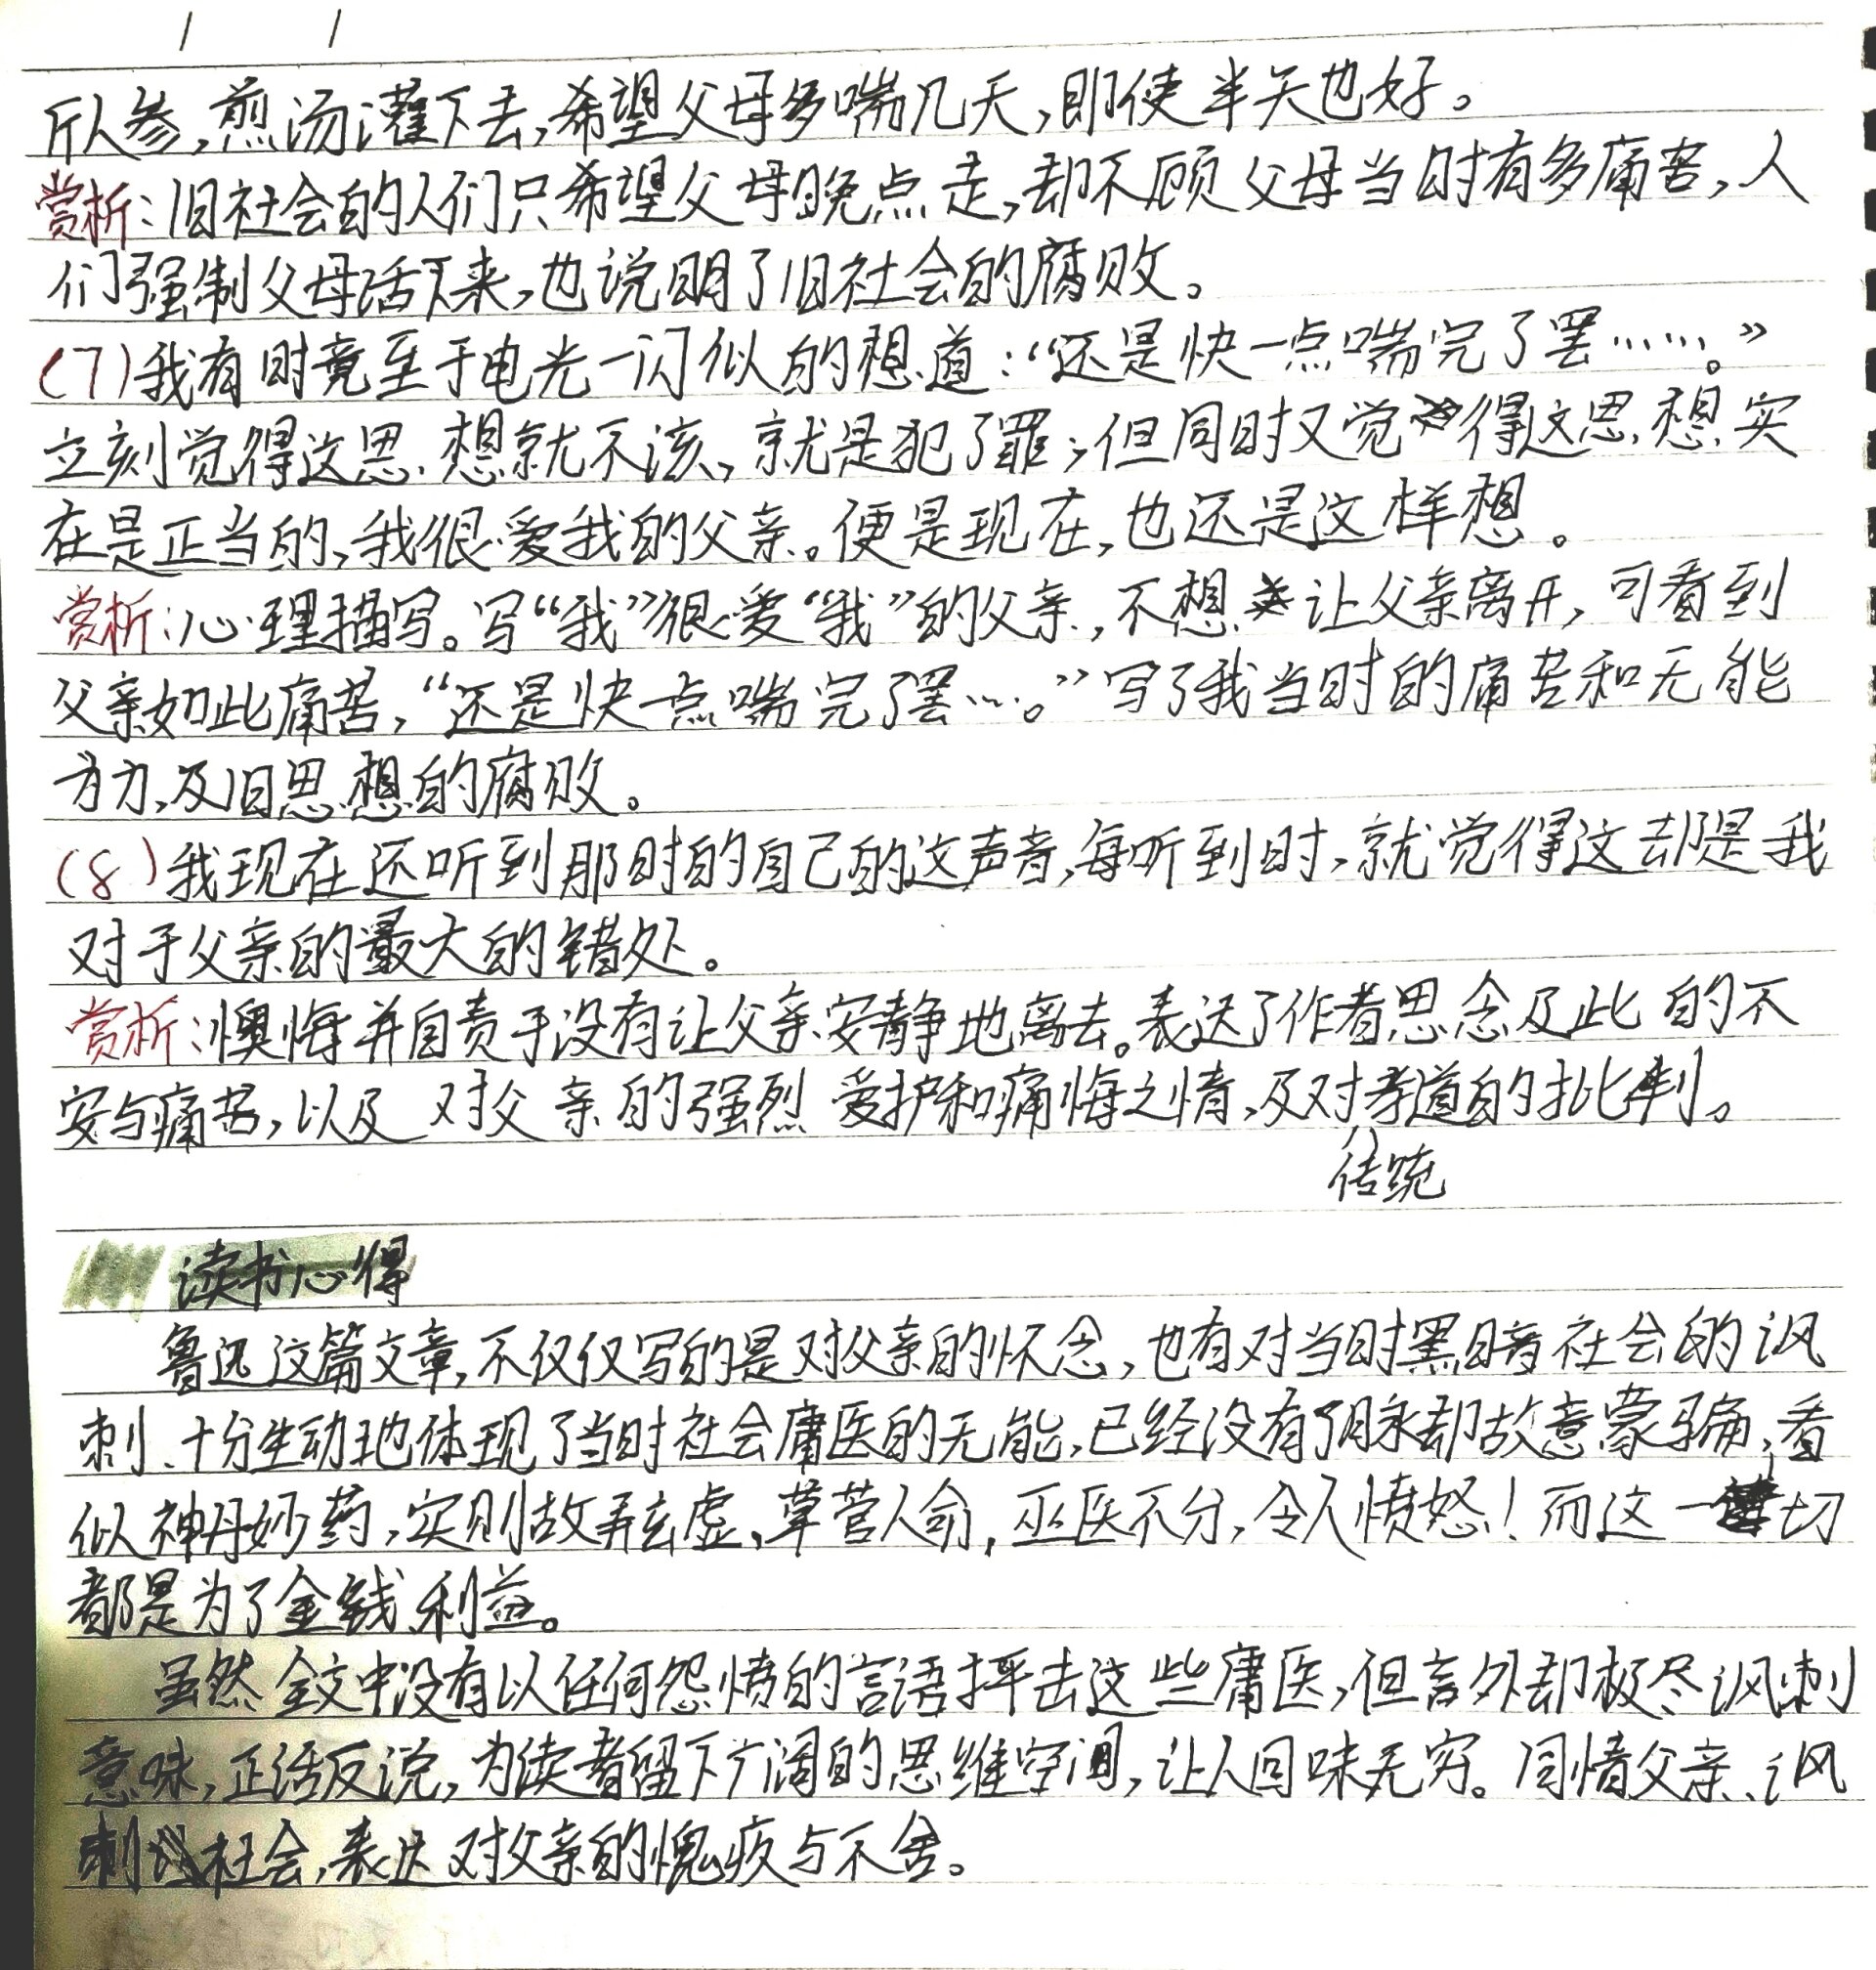 斤人参,煎汤灌下去,希望父母多喘几天,即使半天也好。
赏析:旧社会的人们只希望父母晚点走,却不顾父母当时有多痛苦,人
们强制父母活下来,也说明了旧社会的腐败。
(7)我有时竟至于电光一闪似的想道:“还是快一点喘完了罢……。”
立刻觉得这思想就不该,就是犯了罪;但同时又觉得这思想实
在是正当的,我很爱我的父亲。便是现在,也还是这样想。
赏析:心理描写。写“我”很爱“我”的父亲,不想让父亲离开,可看到
父亲如此痛苦,“还是快一点喘完了罢…。”写了我当时的痛苦和无能
为力,及旧思想的腐败。
(8)我现在还听到那时的自己的这声音,每听到时,就觉得这却是我
对于父亲的最大的错处。
赏析:懊悔并自责于没有让父亲安静地离去。表达了作者思念及此的不
安与痛苦,以及对父亲的强烈爱护和痛悔之情,及对孝道的批判。
传统
读书心得
鲁迅这篇文章,不仅仅写的是对父亲的怀念,也有对当时黑暗社会的讽
刺、十分生动地体现了当时社会庸医的无能,已经没有了脉却故意蒙骗,看
似神丹妙药,实则故弄玄虚、草菅人命,巫医不分,令人愤怒!而这一切
都是为了金钱利益。
虽然全文中没有以任何怨愤的言语抨击这些庸医,但言外却极尽讽刺
意味,正话反说,为读者留下广阔的思维空间,让人回味无穷。同情父亲、讽
刺社会,表达对父亲的愧疚与不舍。